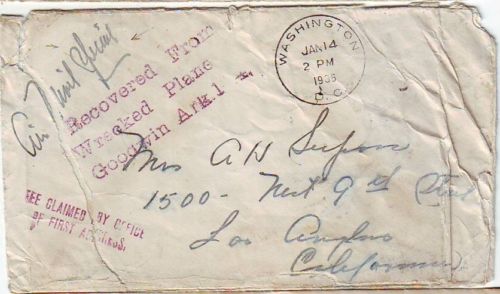 Air Mail
Recovered From
Wrecked Plane
Goodwin Ark.1
WASHINGTON
JAN 14
2 PM
1936
D.C.
Mrs A H
1500 - West 9th
Los Angeles
California
FEE CLAIMED BY OFFICE
OF FIRST ADDRESS.